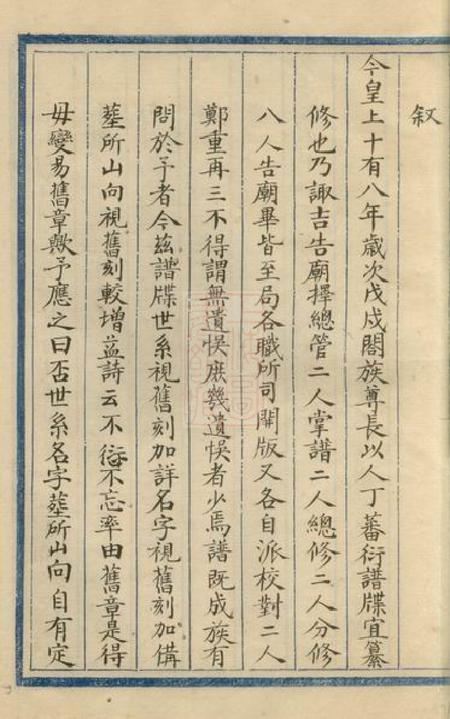 叙
今皇上十有八年歲次戊戌閤族尊長以人丁蕃衍譜牒宜纂
修也乃諏吉告廟擇總管二人掌譜二人總修二人分修
八人告廟畢皆至局各職所司開版又各自派校對二人
鄭重再三不得謂無遺悞庶幾遺悞者少焉譜既成族有
問於予者今茲譜牒世系視舊刻加詳名字視舊刻加備
塟所山向視舊刻較增益詩云不愆不忘率由舊章是得
毋變易舊章歟予應之曰否世系名字塟所山向自有定